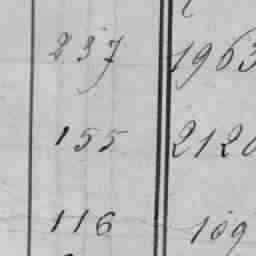 237 1963
155 212
116 109